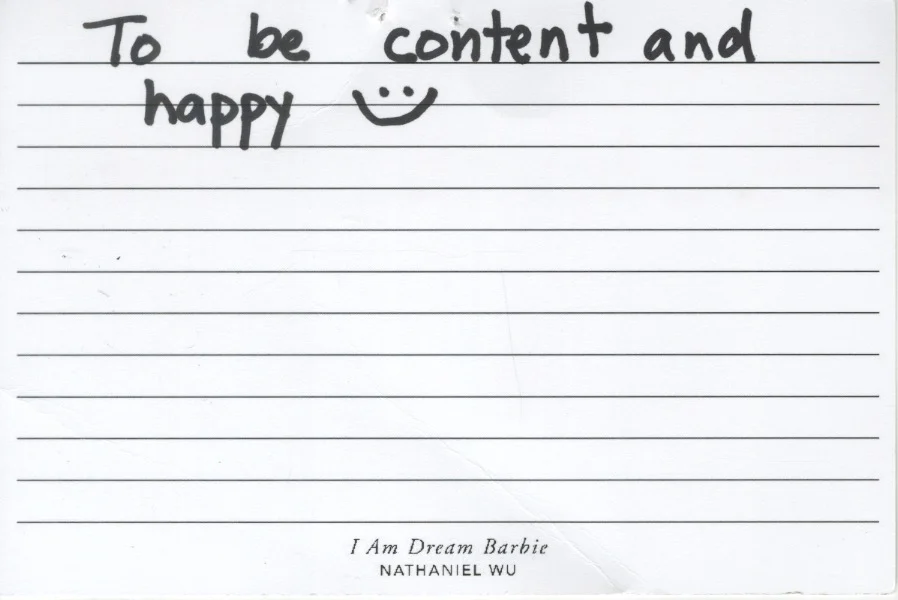 To be content and
happy
I Am Dream Barbie
NATHANIEL WU